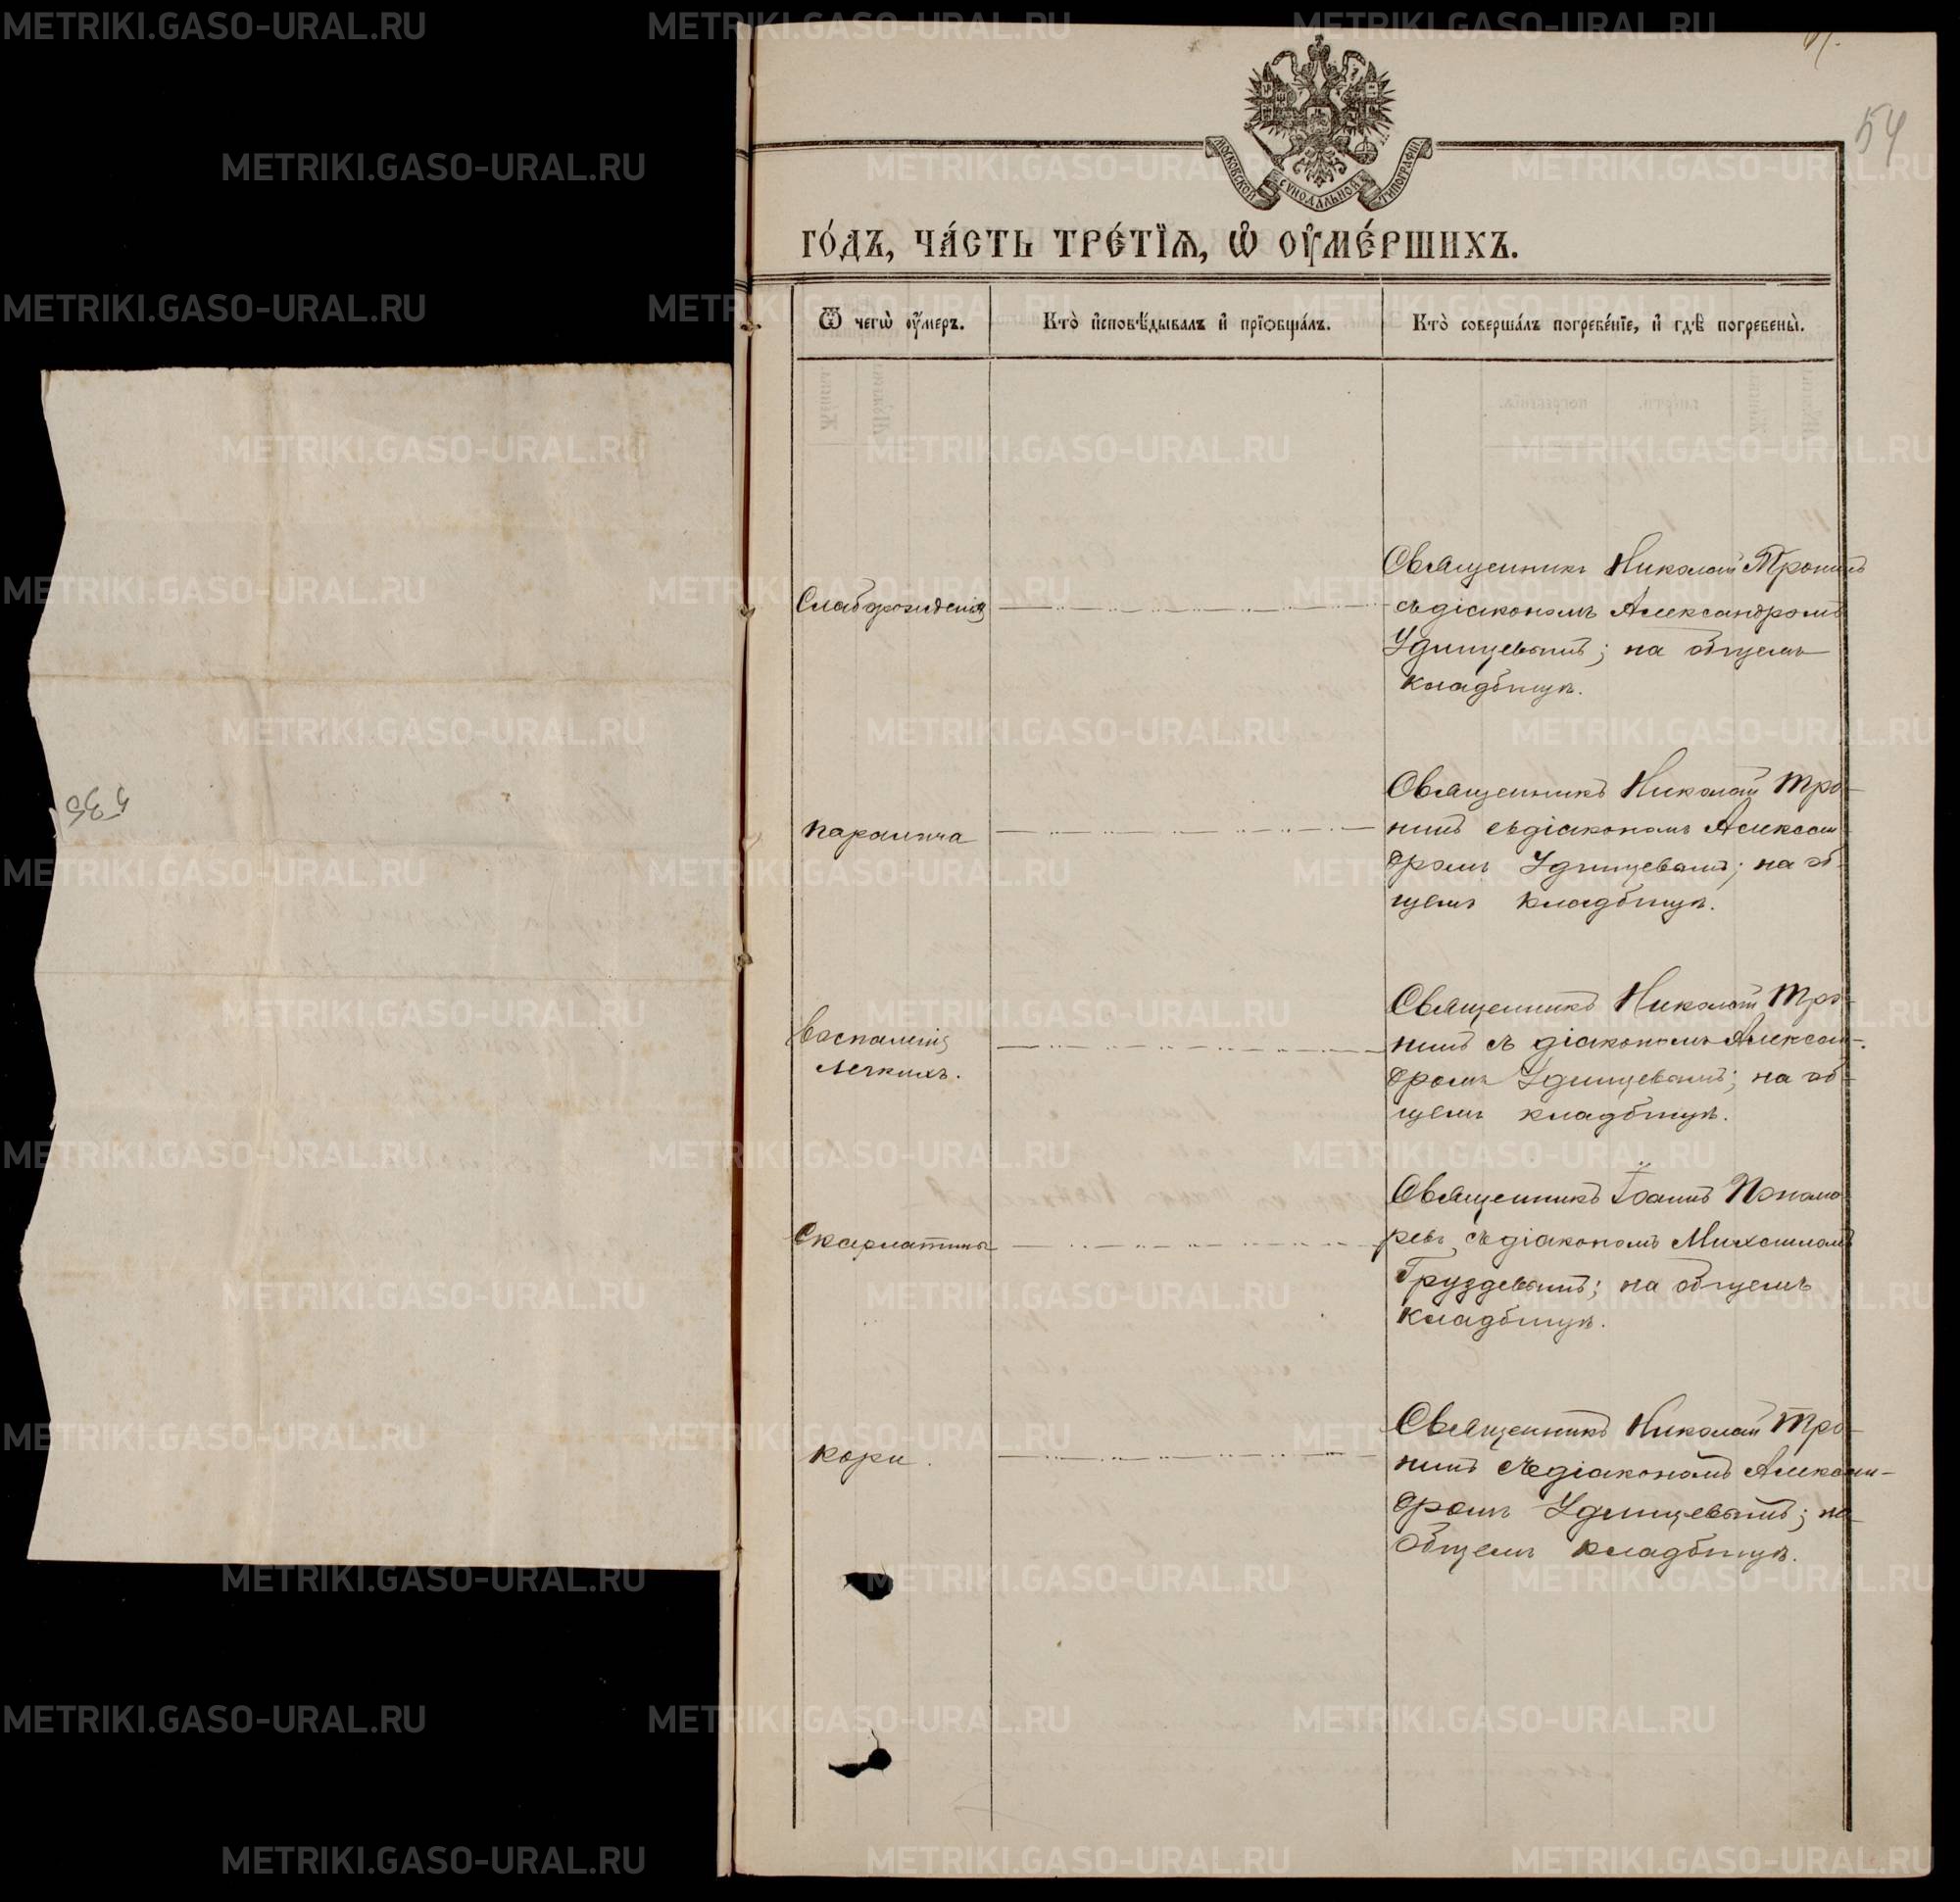 54
МОСКОВСКОЙ СѴНОДАЛЬНОЙ ТИПОГРАФІИ
го́дъ, ча́сть тре́тїѧ, ѡ҆ оу҆ме́ршихъ.
Ѿ чегѡ̀ оу҆́меръ.
Кто̀ и҆сповѣ́дывалъ и҆ прїѡбща́лъ.
Кто̀ соверша́лъ погребе́нїе, и҆ гдѣ̀ погребены̀.
Слаборожденія
Священникъ Николай Тронинъ
съ діакономъ Александромъ
Удинцевымъ; на общемъ
кладбищѣ.
паралича
Священникъ Николай Тро-
нинъ съ діакономъ Алексан-
дромъ Удинцевымъ; на об-
щемъ кладбищѣ.
Воспаленія
легкихъ.
Священникъ Николай Тро-
нинъ съ діакономъ Алексан-
дромъ Удинцевымъ; на об-
щемъ кладбищѣ.
Скарлатины
Священникъ Іоаннъ Понома
ревъ съ діакономъ Михаиломъ
Груздевымъ; на общемъ
кладбищѣ.
кори.
Священникъ Николай Тро-
нинъ съ діакономъ Алексан-
дромъ Удинцевымъ; на
общемъ кладбищѣ.
METRIKI.GASO-URAL.RU